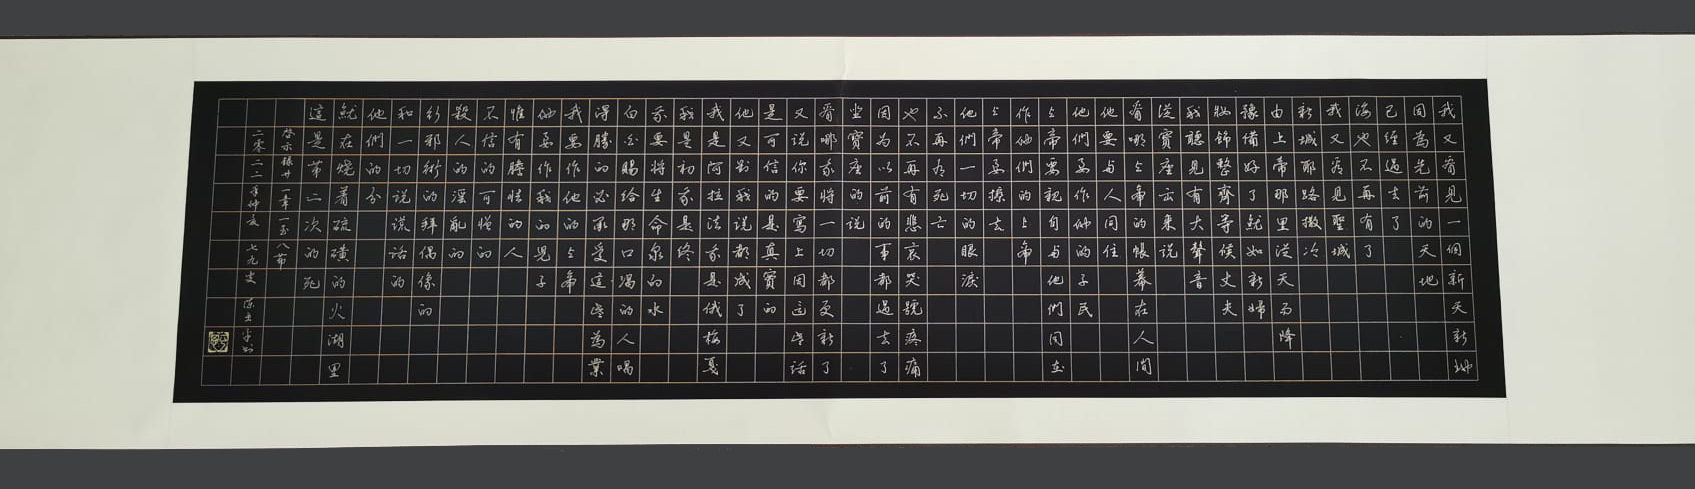 我又看見一個新天新地
因為先前的天地
已經過去了
海也不再有了
我又看見聖城
新城耶路撒冷
由上帝那里從天而降
豫備好了就如新婦
妝飾整齊等候丈夫
我聽見有大聲音
從寶座云來說
看哪上帝的帳幕在人間
他要与人同住
他們要作他的子民
上帝要親自与他們同在
作他們的
上帝要擦去上帝
他們一切的眼淚
不再有死亡
也不再有悲哀哭號疼痛
因為以前的事都過去了
坐寶座的說
看哪我將一切都更新了
又說你要寫上因這些話
是可信的是真實的
他又對我說都成了
我是阿拉法我是俄梅戛
我是初我是終
我要將生命泉的水
白白賜給那口渴的人喝
得勝的必承受這些為業
我要作他的上帝
他要作我的兒子
惟有膽怯的人
不信的可憎的
殺人的淫亂的
行邪術的拜偶像的
和一切說謊話的
他們的分
就在燒着硫磺的火湖里
這是第二次的死
啓示錄廿一章一至八節
二零二二